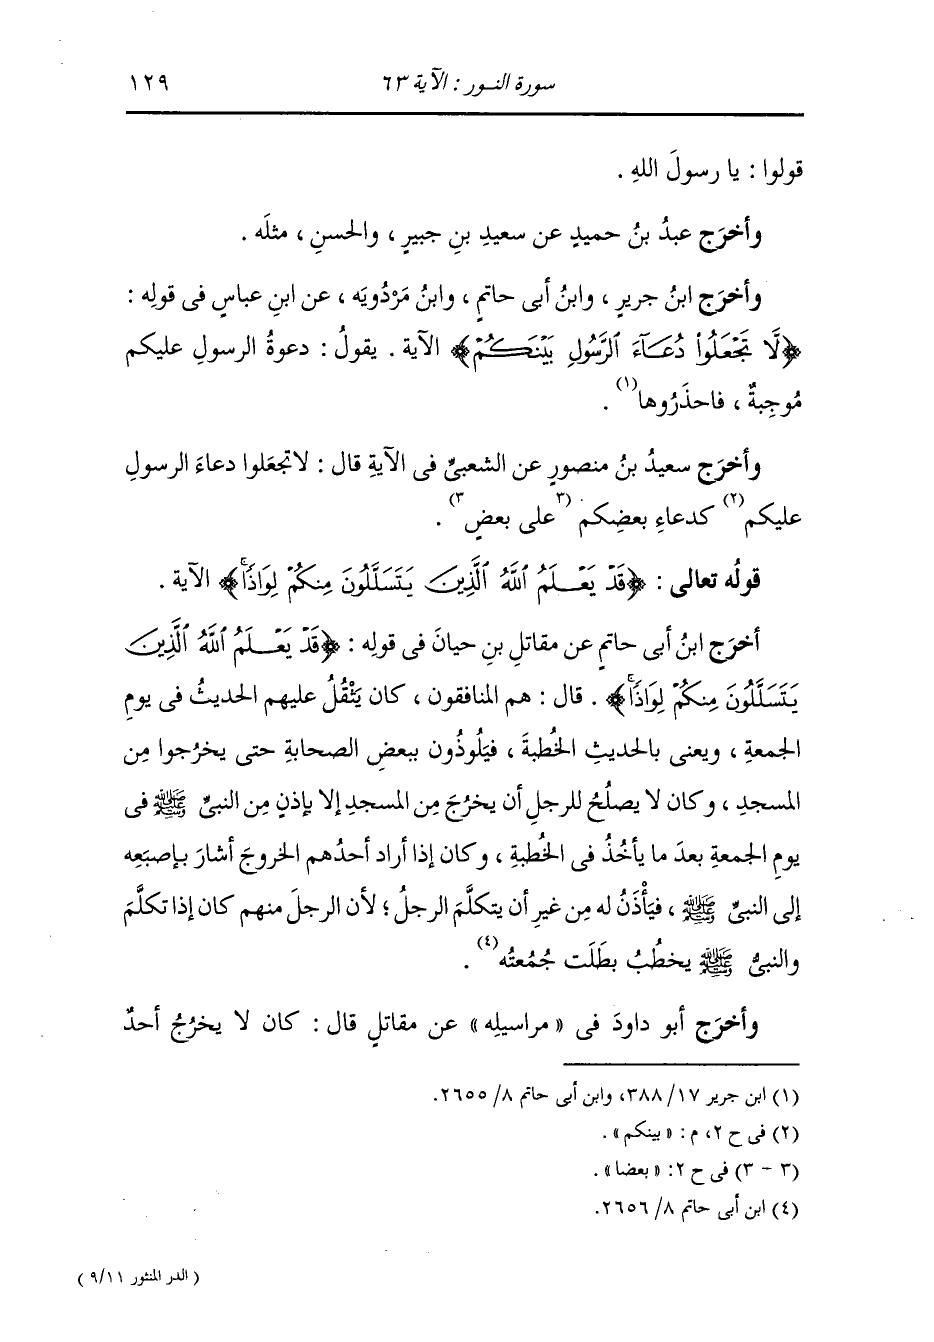 سورة النور : الآية ٦٣ ١٢٩
قولوا : يا رسولَ اللهِ .
وأخرَج عبدُ بنُ حميدٍ عن سعيدِ بنِ جبيرٍ ، والحسنِ ، مثلَه .
وأخرَج ابنُ جريرٍ ، وابنُ أبى حاتمٍ ، وابنُ مَرْدُويَه ، عن ابنِ عباسٍ فى قولِه :
﴿لَّا تَجْعَلُوا۟ دُعَآءَ ٱلرَّسُولِ بَيْنَكُمْ﴾ الآية . يقولُ : دعوةُ الرسولِ عليكم
مُوجِبةٌ ، فاحذَرُوها(١) .
وأخرَج سعيدُ بنُ منصورٍ عن الشعبىِّ فى الآيةِ قال : لا تجعَلوا دعاءَ الرسولِ
عليكم(٢) كدعاءِ بعضِكم (٣على بعضٍ٣) .
قولُه تعالى : ﴿قَدْ يَعْلَمُ ٱللَّهُ ٱلَّذِينَ يَتَسَلَّلُونَ مِنكُمْ لِوَاذًاۚ﴾ الآية .
أخرَج ابنُ أبى حاتمٍ عن مقاتلِ بنِ حيانَ فى قولِه : ﴿قَدْ يَعْلَمُ ٱللَّهُ ٱلَّذِينَ
يَتَسَلَّلُونَ مِنكُمْ لِوَاذًاۚ﴾ . قال : هم المنافقون ، كان يَثْقُلُ عليهم الحديثُ فى يومِ
الجمعةِ ، ويعنى بالحديثِ الخُطبةَ ، فيَلُوذُون ببعضِ الصحابةِ حتى يخرُجوا مِن
المسجدِ ، وكان لا يصلُحُ للرجلِ أن يخرُجَ مِن المسجدِ إلا بإذنٍ مِن النبىِّ ﷺ فى
يومِ الجمعةِ بعدَ ما يأخُذُ فى الخُطبةِ ، وكان إذا أراد أحدُهم الخروجَ أشارَ بإصبَعِه
إلى النبىِّ ﷺ ، فيَأْذَنُ له مِن غيرِ أن يتكلَّمَ الرجلُ ؛ لأن الرجلَ منهم كان إذا تكلَّمَ
والنبىُّ ﷺ يخطُبُ بطَلَت جُمُعتُه(٤) .
وأخرَج أبو داودَ فى « مراسيلِه » عن مقاتلٍ قال : كان لا يخرُجُ أحدٌ
(١) ابن جرير ١٧/ ٣٨٨، وابن أبى حاتم ٨/ ٢٦٥٥.
(٢) فى ح ٢، م : « بينكم » .
(٣ - ٣) فى ح ٢: « بعضا » .
(٤) ابن أبى حاتم ٨/ ٢٦٥٦.
( الدر المنثور ٩/١١ )